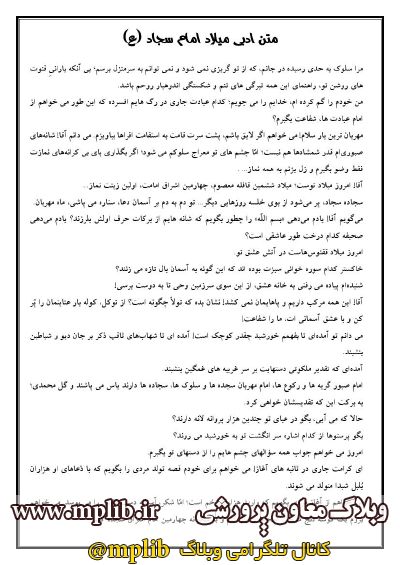 متن ادبی میلاد امام سجاد (ع)
مرا سلوک به حدی رسیده در جانم، که از تو گریزی نمی شود و نمی توانم به سرمنزل برسم؛ بی آنکه بارانیِ قنوت
های روشن تو، راهنمای این همه تیرگی های تنم و شکستگی اندرهبار روحم باشد.
من خودم را گم کرده ام، خدایم را می جویم؛ کدام عبادت جاری در رگ هایم افسرده که این طور می خواهم از
امام عبادت ها، شفاعت بگیرم؟
مهربان ترین یار سلام! می خواهم اگر لایق باشم، پشت سرت قامت به استقامت اقراها بیاویزم. می دانم آقا! شانه‌های
صبوری‌ام قدر شمشادها هم نیست؛ امّا چشم های تو معراج سلوکم می شود؛ اگر بگذاری پای بی کرانه‌های نمازت
فقط وضو بگیرم و زل بزنم به همه نماز... .
آقا! امروز میلاد توست؛ میلاد ششمین قافله معصوم، چهارمین اشراق امامت، اولین زینت نماز...
سجاده سجاده، پر می‌شود از بوی خلسه روزهایی دیگر... تو دم به دم بر آسمان دعا، ستاره می پاشی، ماه مهربان.
می‌گویم آقا! یادم می‌دهی «بسم اللّه» را چطور بگویم که شانه هایم از برکات حرف اولش بلرزند؟ یادم می‌دهی
صحیفه کدام درخت طور عاشقی است؟
امروز میلاد ققنوس‌هاست در آتش عشق تو.
خاکستر کدام سوره خوانی سبزت بوده اند که این گونه به آسمان بال تازه می زنند؟
شنیده‌ام پیاده می رفتی به خانه عشق، از این سوی سرزمین وحی تا به دوست برسی!
آقا! این همه مرکب داریم و پاهایمان نمی کشد! نشان بده که تولاّ چگونه است؟ از توکل، کوله بار عنایتمان را پُر
کن و با عشق آسمانی ات، ما را شفاعت!
می دانم تو آمده‌ای تا بفهمم خورشید چقدر کوچک است! آمده ای تا شهاب‌های ثاقب ذکر بر جان دیو و شیاطین
بنشیند.
آمده‌ای که تقدیر ملکوتی دستهایت بر سر غریبه های غمگین بنشیند.
امام صبور گریه ها و رکوع ها، امام مهربان سجده ها و سلوک ها، سجاده ها دارند یاس می پاشند و گل محمدی؛
به برکت این که تقدیسشان خواهی کرد.
حالا که می آیی، بگو در عبای تو چندین هزار پروانه لانه دارند؟
بگو پرستوها از کدام اشاره سر انگشت تو به خورشید می روند؟
امروز می خواهم جواب همه سؤالهای چشم هایم را از دستهای تو بگیرم.
ای کرامت جاری در ثانیه های آغاز! می خواهم برای خودم قصه تولد مردی را بگویم که با دعاهای او هزاران
بُلبل شیدا متولد می شوند.
وبلاگ معاون پرورشی www.mplib.ir
کانال تلگرامی وبلاگ @mplib